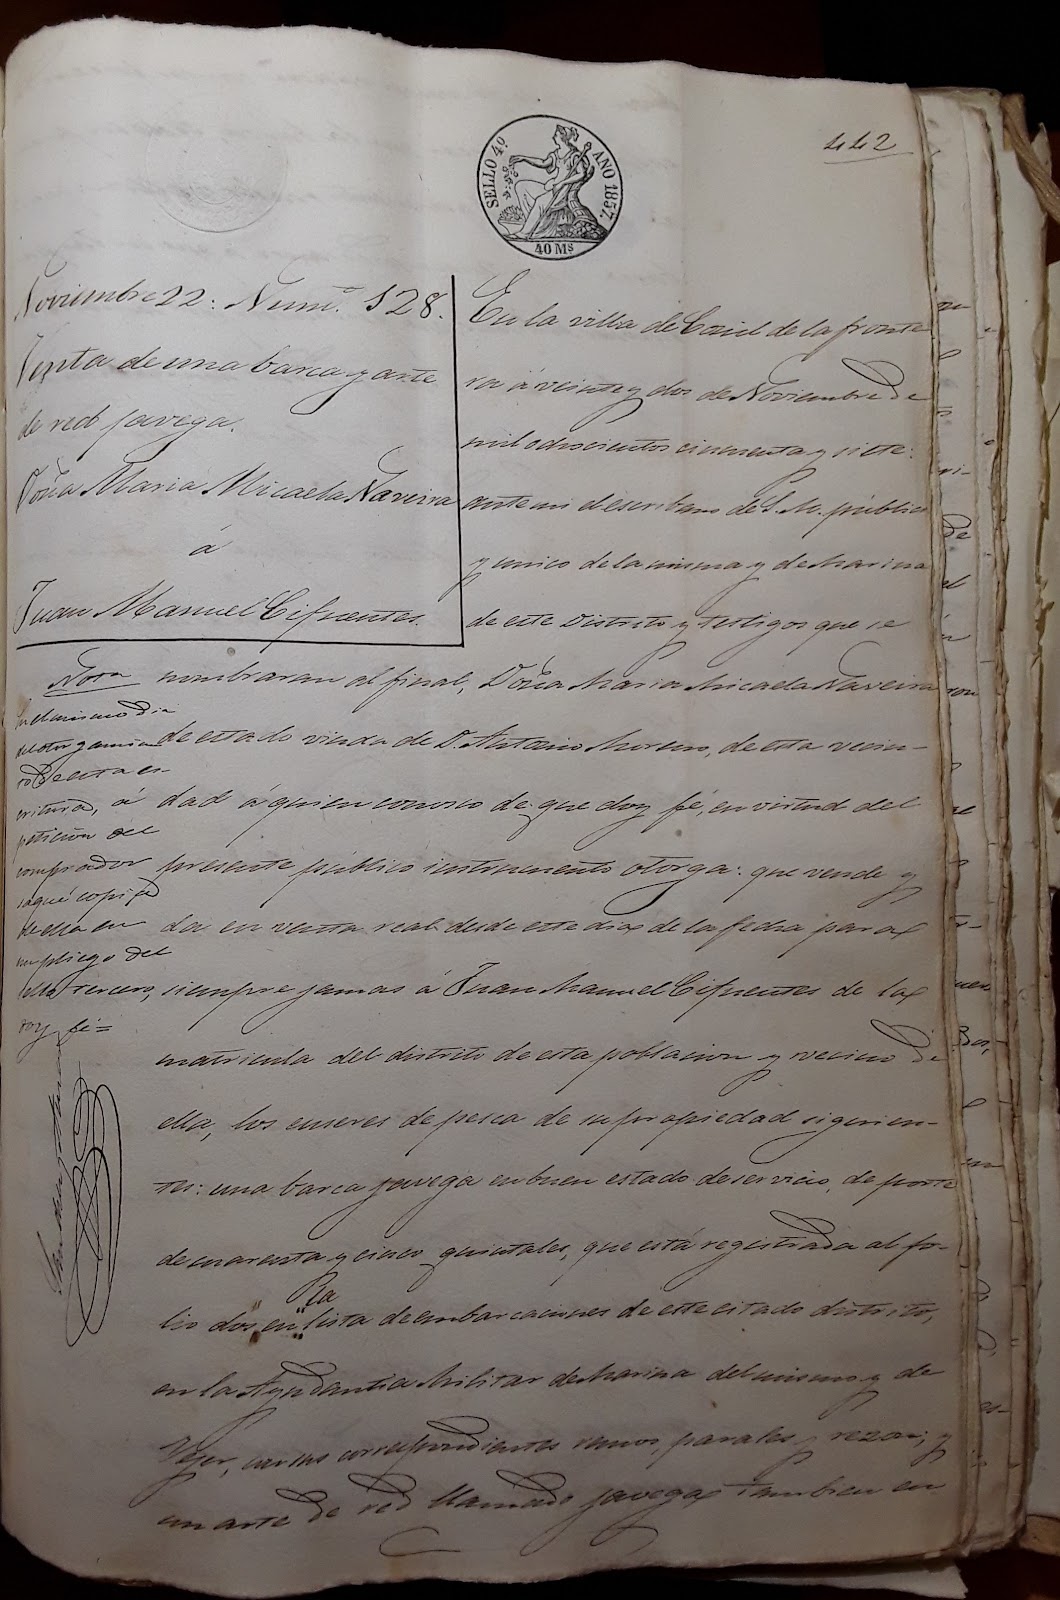 442
SELLO 4º AÑO 1857.
40 Ms
Noviembre 22: Num.º 128.
Venta de una barca y arte
de red javega.
Doña Maria Micaela Naveira
á
Juan Manuel Cifuentes.
En la villa de Conil de la fronte
ra á veinte y dos de Noviembre de
mil ochocientos cincuenta y siete:
ante mi el escribano de S. M. público
y unico de la misma y de Marina
de este Distrito y testigos que se
nombraran al final, Doña Maria Micaela Naveira
de estado viuda de D. Antonio Moreno, de esta vecin-
dad á quien conosco de que doy fé, en virtud del
presente público instrumento otorga: que vende y
da en venta real desde este dia de la fecha para
siempre jamas á Juan Manuel Cifuentes de la
matricula del distrito de esta poblacion y vecino de
ella, los enseres de pesca de su propiedad siguien-
tes: una barca javega en buen estado de servicio, de porte
de cuarenta y cinco quintales, que está registrada al fo-
lio dos en la lista de embarcaciones de este citado distrito,
en la Ayudantia Militar de Marina del mismo y de
Vejer, con sus correspondientes remos, parales y rezon; y
un arte de red llamado javega tambien en
Nota
En el mismo dia
del otorgamien
to de esta es-
critura, á
peticion del
comprador
saqué copia
de ella en
un pliego del
sello tercero,
doy fé=